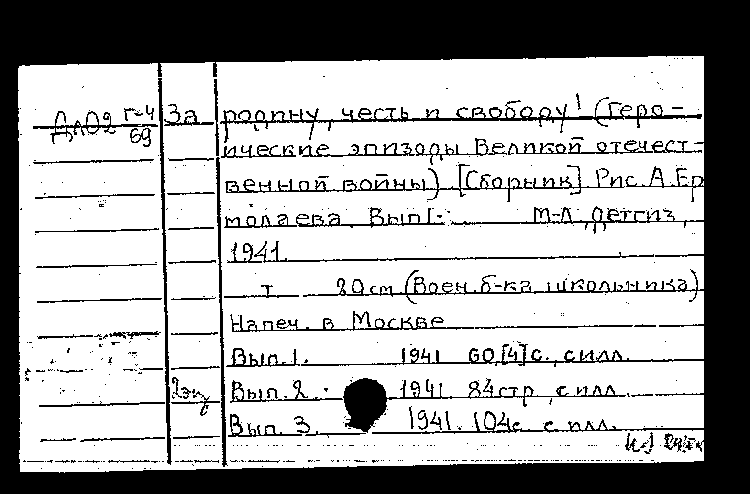 ДлО2 Г-4/69 За родину, честь и свободу! (Геро-
ические эпизоды Великой отечест-
венной войны) [Сборник] Рис. А. Ер
молаева. Вып I-. М-Л, Детгиз,
1941.
т 20см (Воен. б-ка школьника)
Напеч. в Москве
Вып. 1. 1941 60,[4]с., с илл.
2экз Вып. 2. 1941. 84стр, с илл
Вып. 3. 1941. 104с с илл.